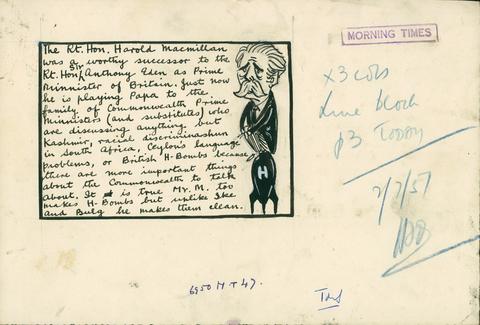 The Rt. Hon. Harold Macmillan
was a worthy successor to the
Rt. Hon. Sir Anthony Eden as Prime
Minnister of Britain. Just now
he is playing Papa to the
family of Commonwealth Prime
Minnisters (and substitutes) who
are discussing anything but
Kashmir, racial discriminashun
in South Africa, Ceylon's language
problems, or British H-Bombs because
there are more important things
about the Commonwealth to talk
about. It is true Mr. M. too
makes H-Bombs but unlike Ike
and Bulg he makes them clean.
H
MORNING TIMES
x3 cols
Line block
p3 TODAY
2/7/57
6950 H T 47.